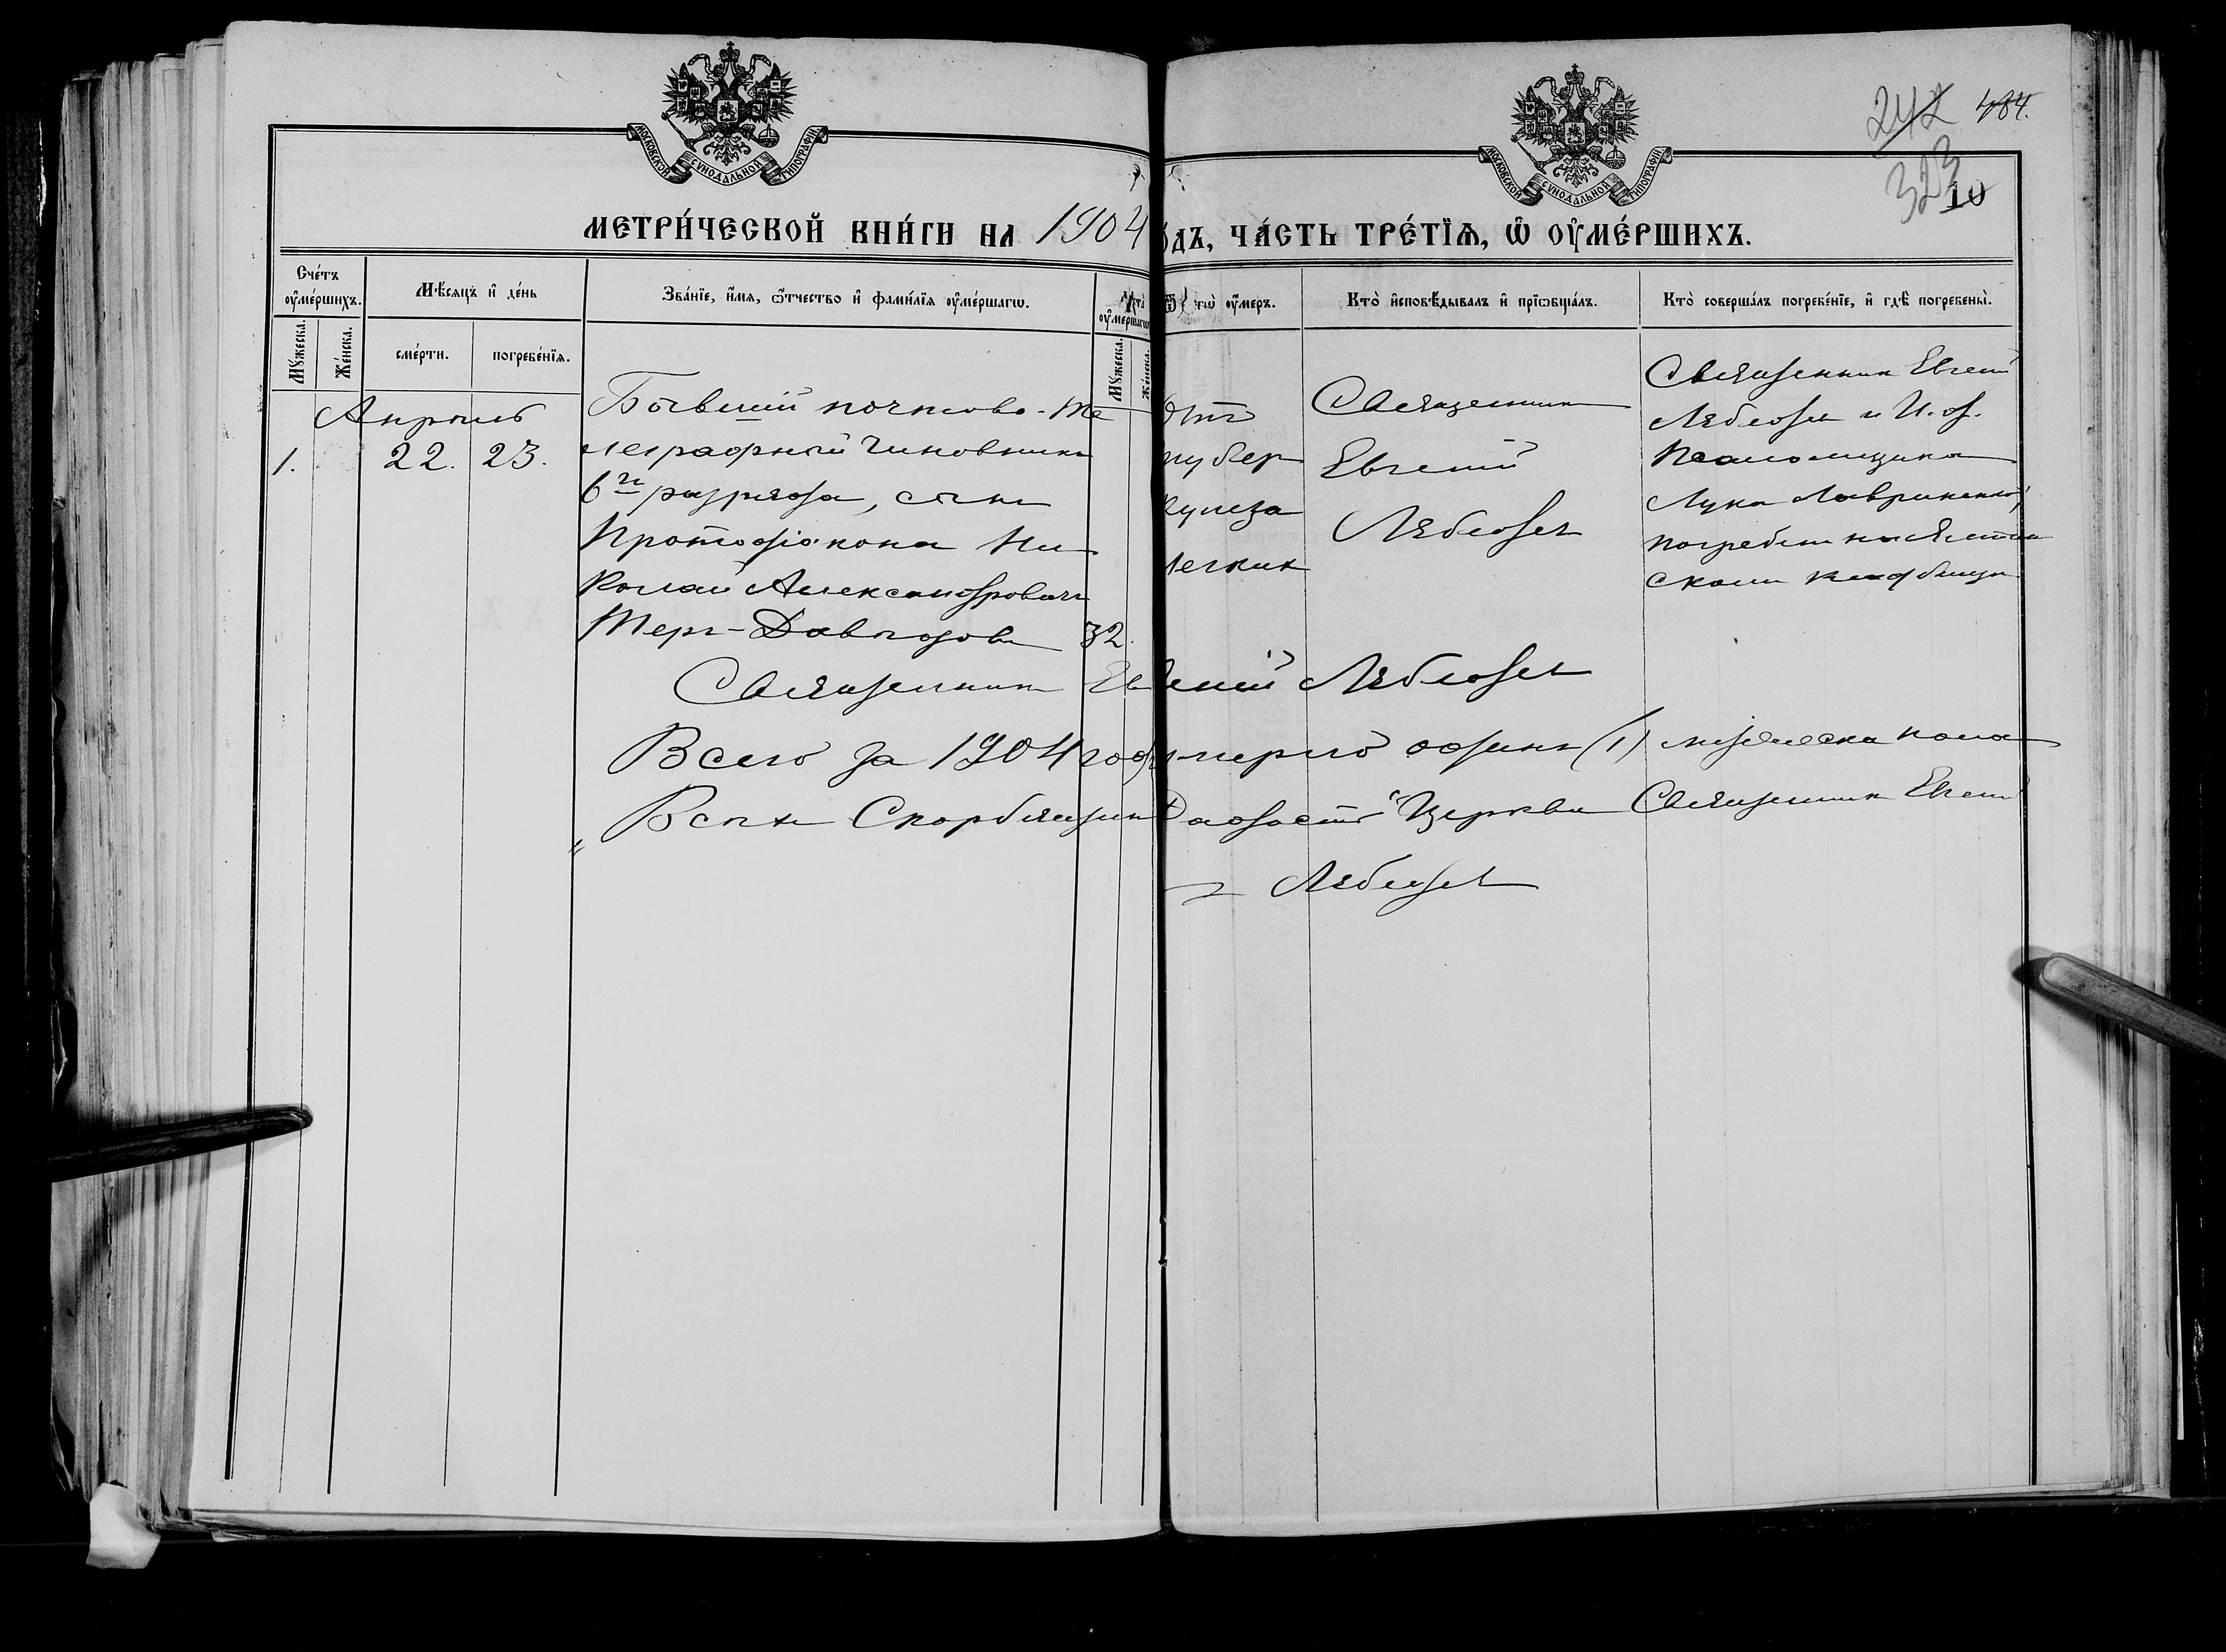 МОСКОВСКОЙ СѴНОДАЛЬНОЙ ТИПОГРАФІИ
МОСКОВСКОЙ СѴНОДАЛЬНОЙ ТИПОГРАФІИ
242 484.
323
10
МЕТРИ́ЧЕСКОЙ КНИ́ГИ НА 1904
о́дъ, ЧА́СТЬ ТРЕ́ТІѦ, Ѡ҆ ОУ҆МЕ́РШИХЪ.
Сче́тъ оу҆ме́ршихъ.
Мѹ́жеска.
Же́нска.
Мѣ́сяцъ и҆ де́нь
сме́рти.
погребе́нїя.
Зва́нїе, и҆́мя, ѻ҆́тчество и҆ фами́лїя оу҆ме́ршагѡ.
Лѣта̀ оу҆ме́ршагѡ
Мѹ́жеска.
Же́нска.
Ѿ чегѡ̀ оу҆́меръ.
Кто̀ и҆сповѣ́дывалъ и҆ прїѡбща́лъ.
Кто̀ соверша́лъ погребе́нїе, и҆ гдѣ̀ погребены̀.
Апрѣль
1. 22. 23.
Бывшій почтово-те
леграфный чиновникъ
6го разряда, сынъ
Протодіакона Ни
колай Александровичъ
Теръ-Давыдовъ 32.
Отъ
тубер
кулеза
легких
Священникъ
Евгеній
Лебедевъ
Священник Евгеній
Лебедевъ и И. д.
Псаломщика
Лука Лавриненко,
погребенъ на
скомъ кладбищѣ
Священникъ Евгеній Лебедевъ
Всего за 1904 годъ умерло одинъ (1) мужеска пола
„Всѣхъ Скорбящихъ Радости“ Церкви Священникъ Евгеній
Лебедевъ